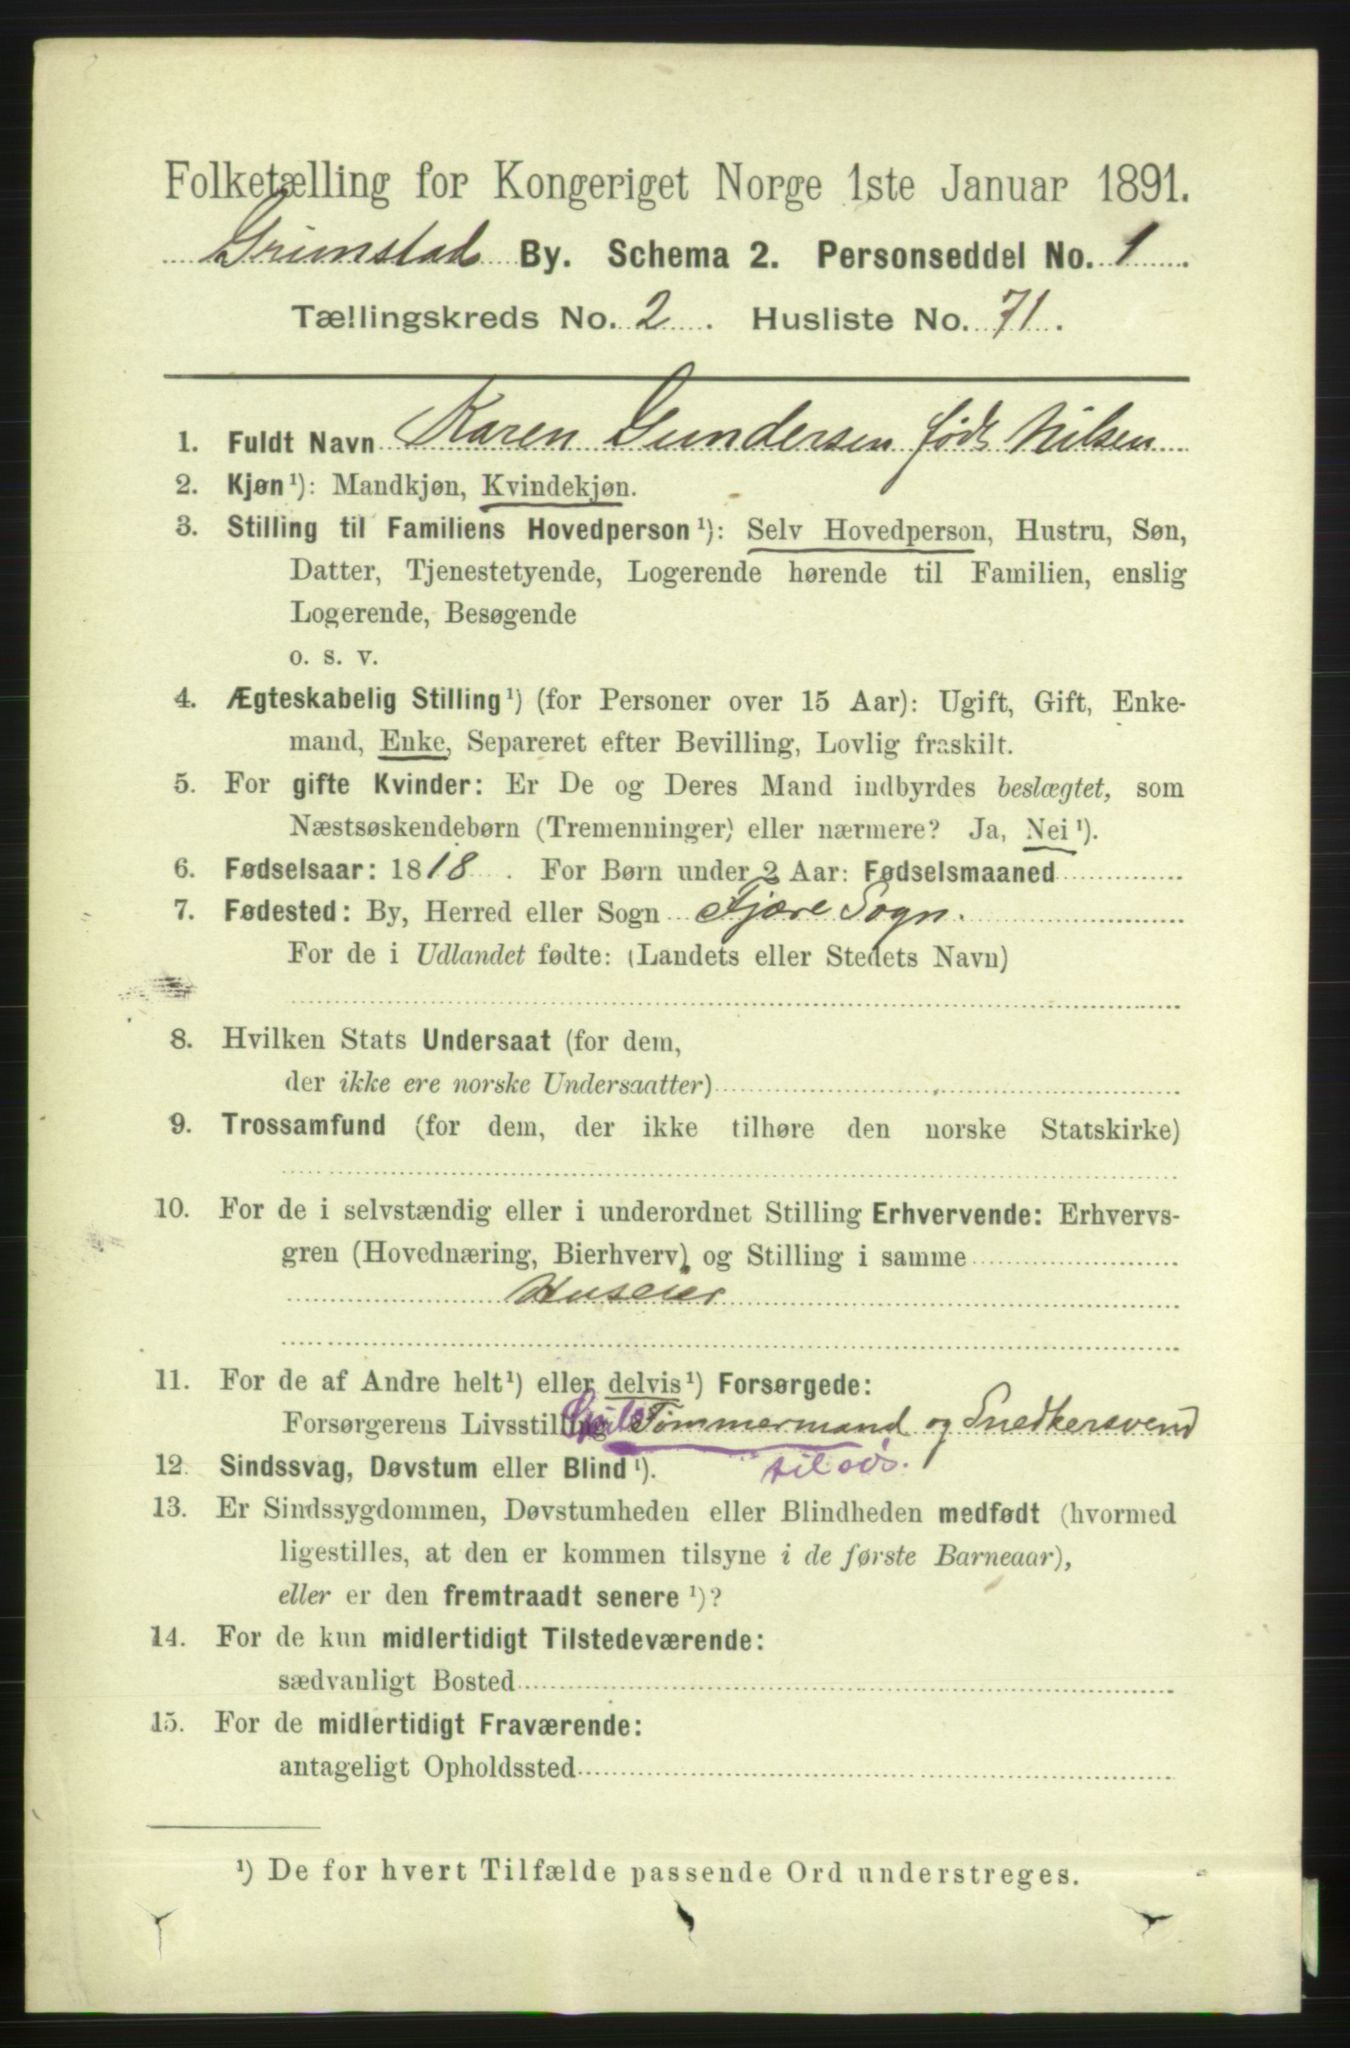 Folketælling for Kongeriget Norge 1ste Januar 1891.
Grimstad By. Schema 2. Personseddel No. 1
Tællingskreds No. 2. Husliste No. 71.
1. Fuldt Navn Karen Gundersen født Nilsen
2. Kjøn¹): Mandkjøn, Kvindekjøn.
3. Stilling til Familiens Hovedperson¹): Selv Hovedperson, Hustru, Søn,
Datter, Tjenestetyende, Logerende hørende til Familien, enslig
Logerende, Besøgende
o. s. v.
4. Ægteskabelig Stilling¹) (for Personer over 15 Aar): Ugift, Gift, Enke-
mand, Enke, Separeret efter Bevilling, Lovlig fraskilt.
5. For gifte Kvinder: Er De og Deres Mand indbyrdes beslægtet, som
Næstsøskendebørn (Tremenninger) eller nærmere? Ja, Nei¹).
6. Fødselsaar: 1818. For Børn under 2 Aar: Fødselsmaaned
7. Fødested: By, Herred eller Sogn Fjære Sogn.
For de i Udlandet fødte: (Landets eller Stedets Navn)
8. Hvilken Stats Undersaat (for dem,
der ikke ere norske Undersaatter)
9. Trossamfund (for dem, der ikke tilhøre den norske Statskirke)
10. For de i selvstændig eller i underordnet Stilling Erhvervende: Erhvervs-
gren (Hovednæring, Bierhverv) og Stilling i samme
Huseier
11. For de af Andre helt¹) eller delvis¹) Forsørgede:
Forsørgerens Livsstilling Tømmermand og Snedkersvend
12. Sindssvag, Døvstum eller Blind¹). til søs.
13. Er Sindssygdommen, Døvstumheden eller Blindheden medfødt (hvormed
ligestilles, at den er kommen tilsyne i de første Barneaar),
eller er den fremtraadt senere¹)?
14. For de kun midlertidigt Tilstedeværende:
sædvanligt Bosted
15. For de midlertidigt Fraværende:
antageligt Opholdssted
¹) De for hvert Tilfælde passende Ord understreges.